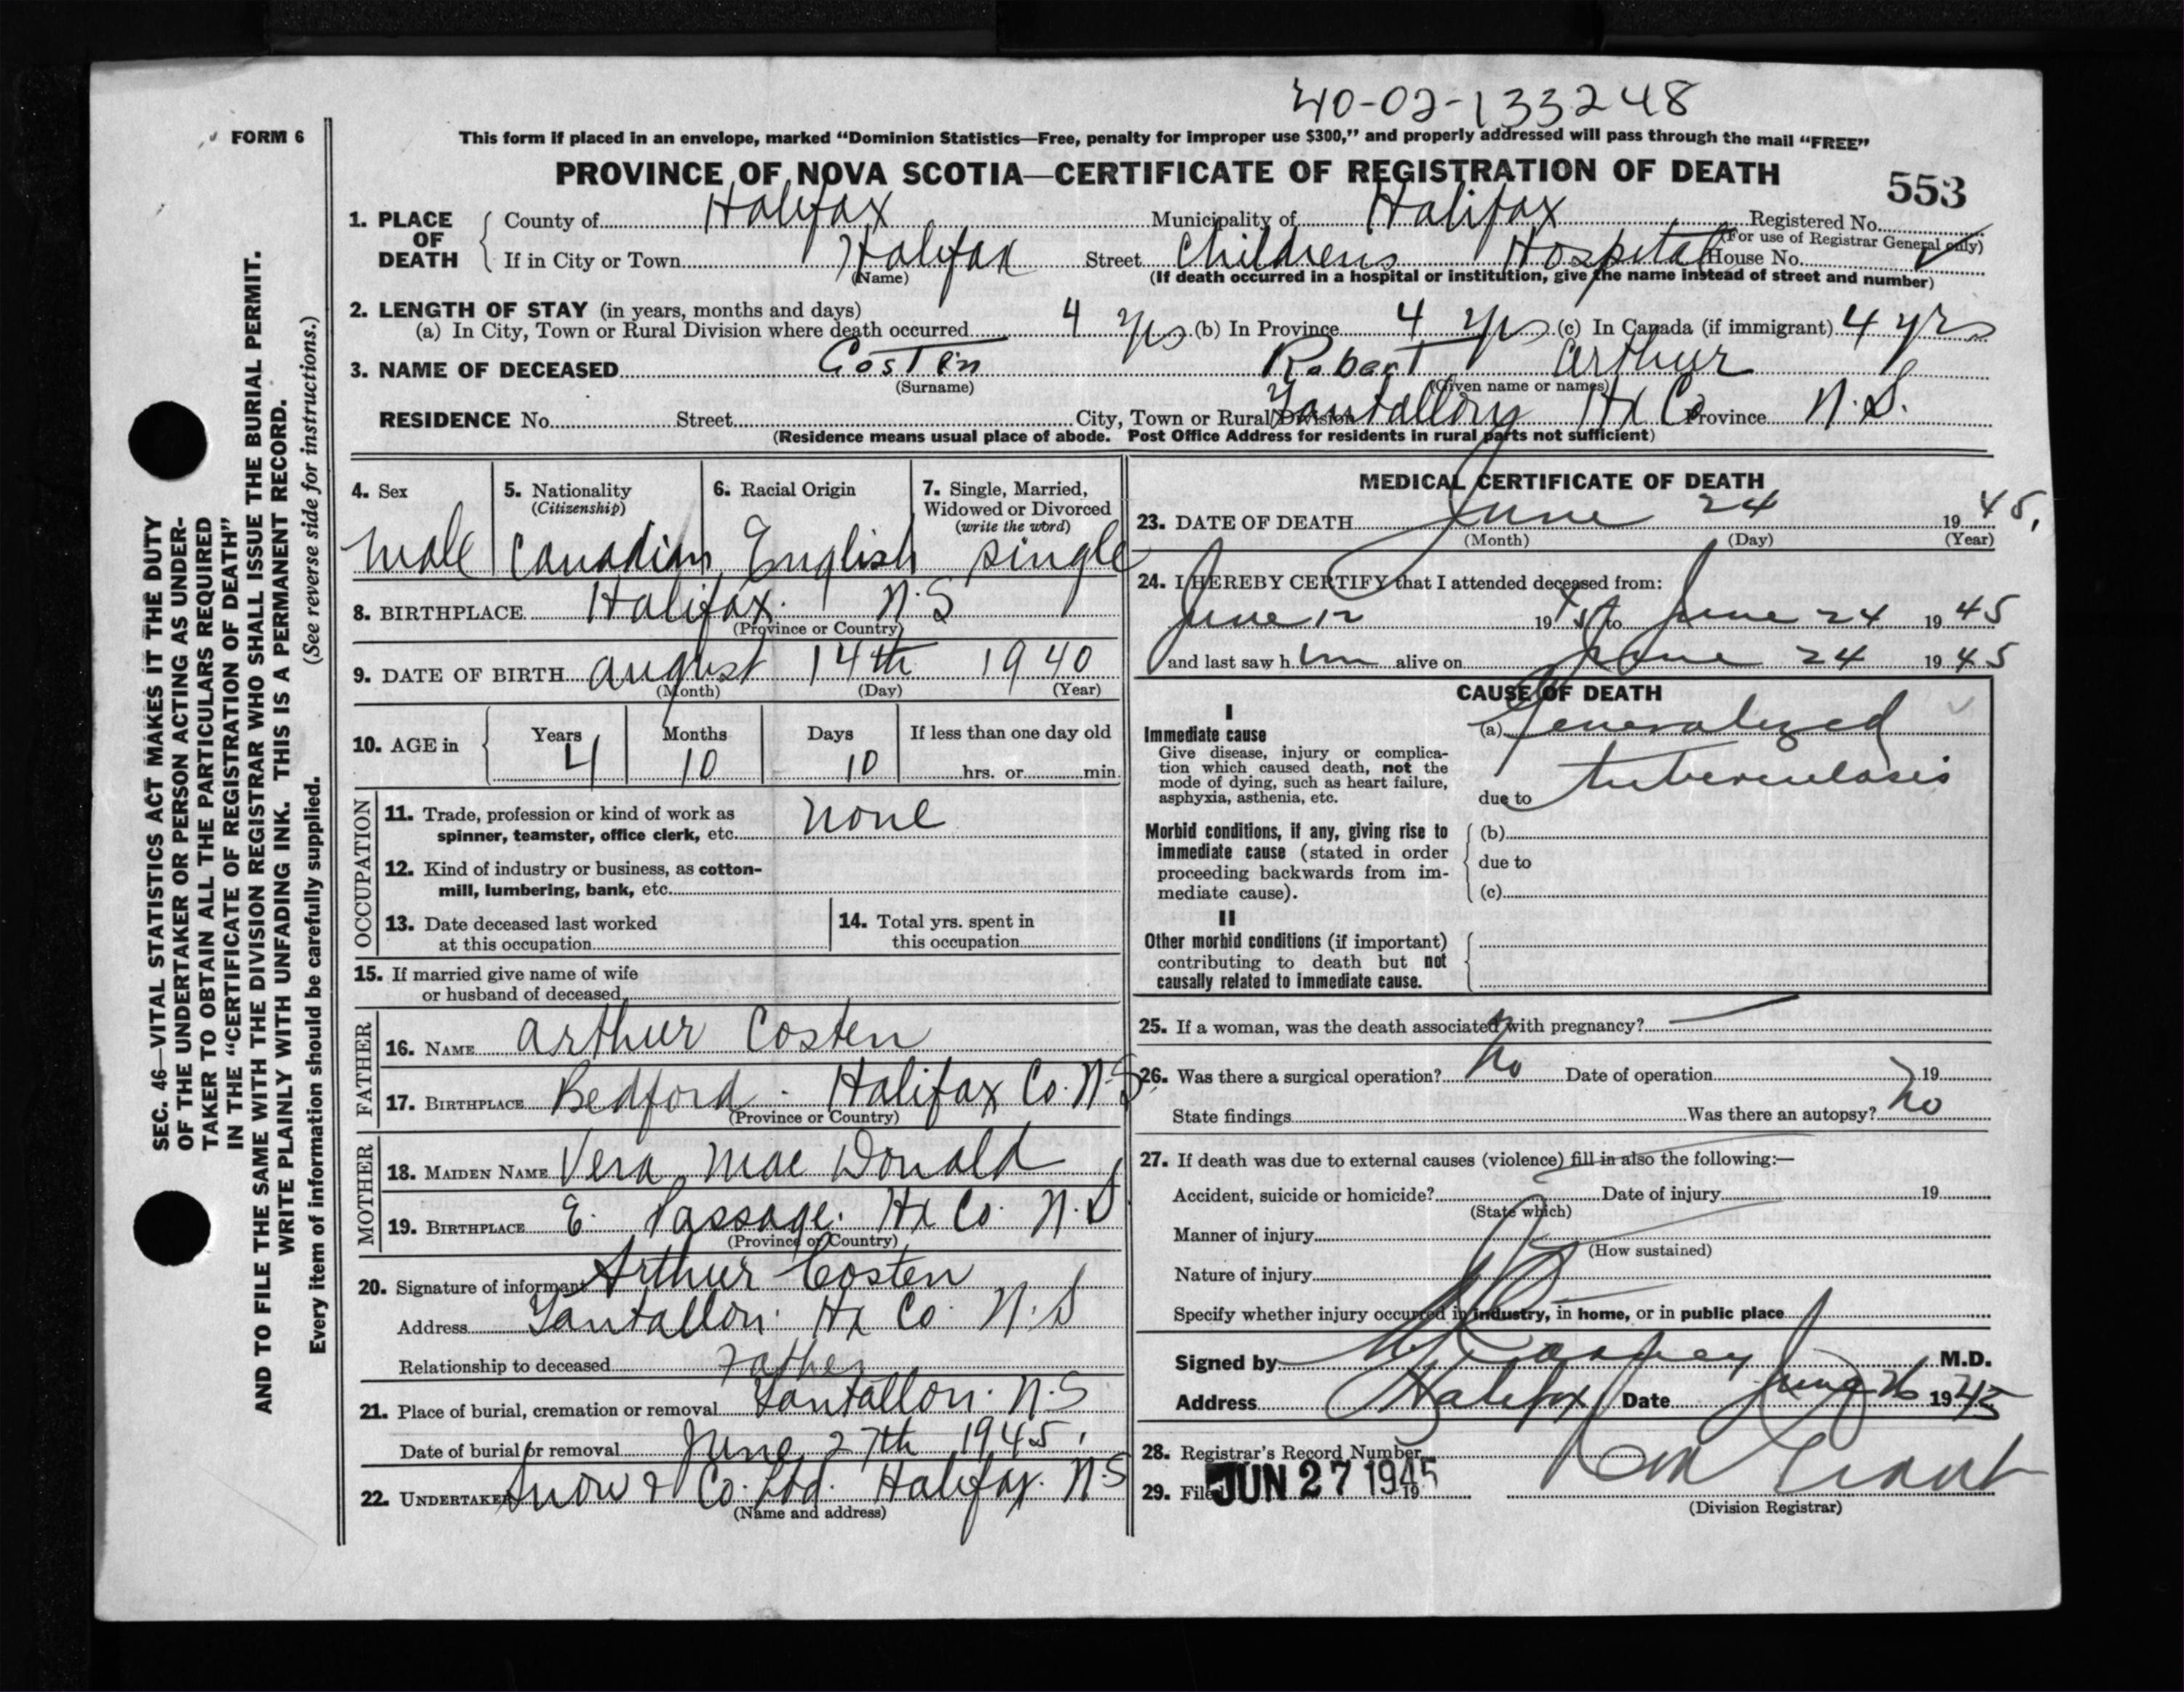 40-02-133248
FORM 6
This form if placed in an envelope, marked "Dominion Statistics—Free, penalty for improper use $300," and properly addressed will pass through the mail "FREE"
PROVINCE OF NOVA SCOTIA—CERTIFICATE OF REGISTRATION OF DEATH
553
1. PLACE OF DEATH County of Halifax Municipality of Halifax Registered No.
(For use of Registrar General only)
If in City or Town Halifax Street Childrens Hospital House No.
(Name) (If death occurred in a hospital or institution, give the name instead of street and number)
2. LENGTH OF STAY (in years, months and days)
(a) In City, Town or Rural Division where death occurred 4 yrs (b) In Province 4 yrs (c) In Canada (if immigrant) 4 yrs
3. NAME OF DECEASED Costen Robert Arthur
(Surname) (Given name or names)
RESIDENCE No. Street City, Town or Rural Division Tantallon Hx Co Province N.S.
(Residence means usual place of abode. Post Office Address for residents in rural parts not sufficient)
4. Sex 5. Nationality (Citizenship) 6. Racial Origin 7. Single, Married, Widowed or Divorced (write the word)
male Canadian English single
8. BIRTHPLACE Halifax. N.S
(Province or Country)
9. DATE OF BIRTH August 14th 1940
(Month) (Day) (Year)
10. AGE in Years Months Days If less than one day old
4 10 10 hrs. or min.
OCCUPATION
11. Trade, profession or kind of work as
spinner, teamster, office clerk, etc. none
12. Kind of industry or business, as cotton-
mill, lumbering, bank, etc.
13. Date deceased last worked
at this occupation
14. Total yrs. spent in
this occupation
15. If married give name of wife
or husband of deceased
FATHER
16. NAME Arthur Costen
17. BIRTHPLACE Bedford - Halifax Co. N.S
(Province or Country)
MOTHER
18. MAIDEN NAME Vera Mac Donald
19. BIRTHPLACE E. Passage. Hx Co. N.S
(Province or Country)
20. Signature of informant Arthur Costen
Address Tantallon. Hx Co. N.S
Relationship to deceased Father
21. Place of burial, cremation or removal Tantallon. N.S
Date of burial or removal June 27th 1945.
22. UNDERTAKER Snow & Co. Ltd. Halifax. N.S
(Name and address)
MEDICAL CERTIFICATE OF DEATH
23. DATE OF DEATH June 24 1945.
(Month) (Day) (Year)
24. I HEREBY CERTIFY that I attended deceased from:
June 12 1945 to June 24 1945
and last saw him alive on June 24 1945
CAUSE OF DEATH
I
Immediate cause
Give disease, injury or complica-
tion which caused death, not the
mode of dying, such as heart failure,
asphyxia, asthenia, etc.
(a) Generalized
tuberculosis
due to
Morbid conditions, if any, giving rise to
immediate cause (stated in order
proceeding backwards from im-
mediate cause).
(b)
due to
(c)
II
Other morbid conditions (if important)
contributing to death but not
causally related to immediate cause.
25. If a woman, was the death associated with pregnancy?
26. Was there a surgical operation? No Date of operation 19
State findings Was there an autopsy? No
27. If death was due to external causes (violence) fill in also the following:—
Accident, suicide or homicide? Date of injury 19
(State which)
Manner of injury
(How sustained)
Nature of injury
Specify whether injury occurred in industry, in home, or in public place
Signed by M.D.
Address Halifax Date June 26 1945
28. Registrar's Record Number
29. File JUN 27 1945 19
(Division Registrar)
SEC. 46—VITAL STATISTICS ACT MAKES IT THE DUTY
OF THE UNDERTAKER OR PERSON ACTING AS UNDER-
TAKER TO OBTAIN ALL THE PARTICULARS REQUIRED
IN THE "CERTIFICATE OF REGISTRATION OF DEATH"
AND TO FILE THE SAME WITH THE DIVISION REGISTRAR WHO SHALL ISSUE THE BURIAL PERMIT.
WRITE PLAINLY WITH UNFADING INK. THIS IS A PERMANENT RECORD.
Every item of information should be carefully supplied. (See reverse side for instructions.)